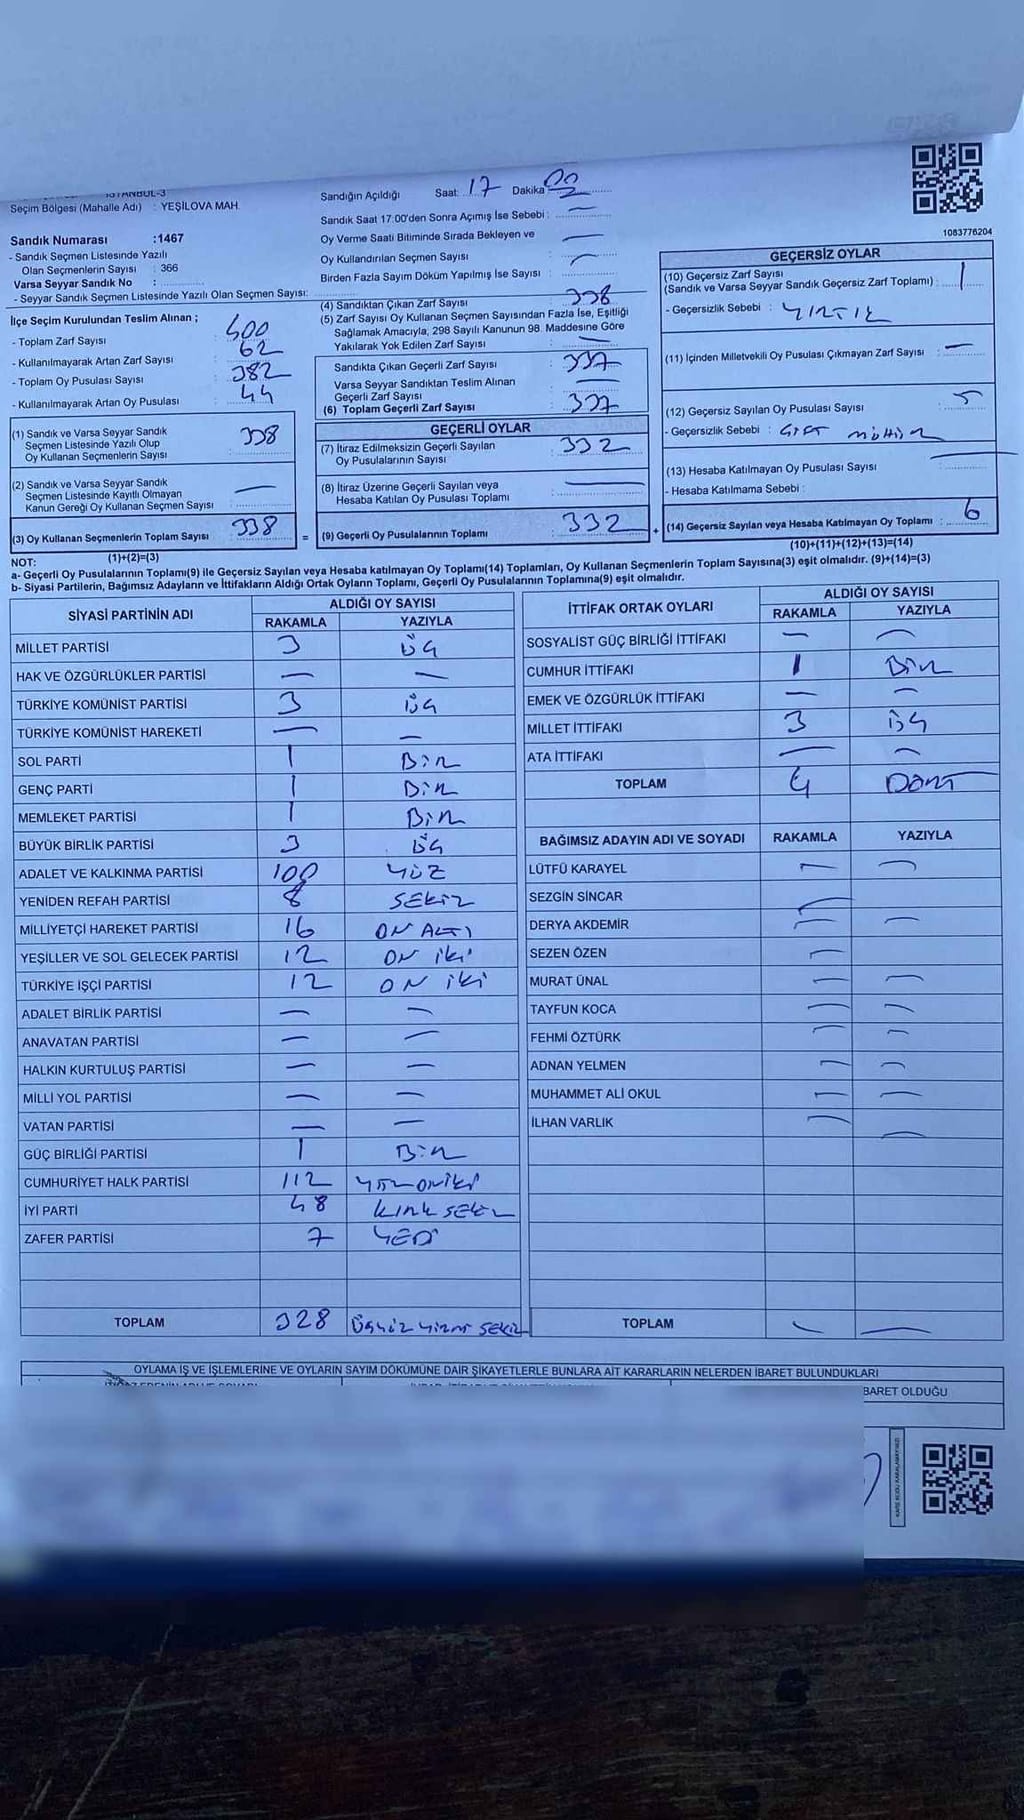 İSTANBUL-3
Seçim Bölgesi (Mahalle Adı) : YEŞİLOVA MAH.
Sandık Numarası :1467
- Sandık Seçmen Listesinde Yazılı
Olan Seçmenlerin Sayısı : 366
Varsa Seyyar Sandık No :
- Seyyar Sandık Seçmen Listesinde Yazılı Olan Seçmen Sayısı:
İlçe Seçim Kurulundan Teslim Alınan ;
- Toplam Zarf Sayısı : 400
- Kullanılmayarak Artan Zarf Sayısı : 62
- Toplam Oy Pusulası Sayısı : 382
- Kullanılmayarak Artan Oy Pusulası : 44
(1) Sandık ve Varsa Seyyar Sandık
Seçmen Listesinde Yazılı Olup
Oy Kullanan Seçmenlerin Sayısı 338
(2) Sandık ve Varsa Seyyar Sandık
Seçmen Listesinde Kayıtlı Olmayan
Kanun Gereği Oy Kullanan Seçmen Sayısı —
(3) Oy Kullanan Seçmenlerin Toplam Sayısı 338
(1)+(2)=(3)
Sandığın Açıldığı Saat: 17 Dakika 00
Sandık Saat 17:00'den Sonra Açımış İse Sebebi : —
Oy Verme Saati Bitiminde Sırada Bekleyen ve
Oy Kullandırılan Seçmen Sayısı —
Birden Fazla Sayım Döküm Yapılmış İse Sayısı : —
(4) Sandıktan Çıkan Zarf Sayısı 338
(5) Zarf Sayısı Oy Kullanan Seçmen Sayısından Fazla İse, Eşitliği
Sağlamak Amacıyla, 298 Sayılı Kanunun 98. Maddesine Göre
Yakılarak Yok Edilen Zarf Sayısı —
Sandıkta Çıkan Geçerli Zarf Sayısı 337
Varsa Seyyar Sandıktan Teslim Alınan
Geçerli Zarf Sayısı —
(6) Toplam Geçerli Zarf Sayısı 337
GEÇERLİ OYLAR
(7) İtiraz Edilmeksizin Geçerli Sayılan
Oy Pusulalarının Sayısı 332
(8) İtiraz Üzerine Geçerli Sayılan veya
Hesaba Katılan Oy Pusulası Toplamı —
= (9) Geçerli Oy Pusulalarının Toplamı 332 +
1083776204
GEÇERSİZ OYLAR
(10) Geçersiz Zarf Sayısı
(Sandık ve Varsa Seyyar Sandık Geçersiz Zarf Toplamı) : 1
- Geçersizlik Sebebi : YIRTIK
(11) İçinden Milletvekili Oy Pusulası Çıkmayan Zarf Sayısı : —
(12) Geçersiz Sayılan Oy Pusulası Sayısı : 5
- Geçersizlik Sebebi : ÇİFT MÜHÜR
(13) Hesaba Katılmayan Oy Pusulası Sayısı : —
- Hesaba Katılmama Sebebi :
(14) Geçersiz Sayılan veya Hesaba Katılmayan Oy Toplamı : 6
(10)+(11)+(12)+(13)=(14)
NOT:
a- Geçerli Oy Pusulalarının Toplamı(9) ile Geçersiz Sayılan veya Hesaba katılmayan Oy Toplamı(14) Toplamları, Oy Kullanan Seçmenlerin Toplam Sayısına(3) eşit olmalıdır. (9)+(14)=(3)
b- Siyasi Partilerin, Bağımsız Adayların ve İttifakların Aldığı Ortak Oyların Toplamı, Geçerli Oy Pusulalarının Toplamına(9) eşit olmalıdır.
SİYASİ PARTİNİN ADI ALDIĞI OY SAYISI
RAKAMLA YAZIYLA
MİLLET PARTİSİ 3 ÜÇ
HAK VE ÖZGÜRLÜKLER PARTİSİ — —
TÜRKİYE KOMÜNİST PARTİSİ 3 ÜÇ
TÜRKİYE KOMÜNİST HAREKETİ — —
SOL PARTİ 1 BİR
GENÇ PARTİ 1 BİR
MEMLEKET PARTİSİ 1 BİR
BÜYÜK BİRLİK PARTİSİ 3 ÜÇ
ADALET VE KALKINMA PARTİSİ 100 YÜZ
YENİDEN REFAH PARTİSİ 8 SEKİZ
MİLLİYETÇİ HAREKET PARTİSİ 16 ON ALTI
YEŞİLLER VE SOL GELECEK PARTİSİ 12 ON İKİ
TÜRKİYE İŞÇİ PARTİSİ 12 ON İKİ
ADALET BİRLİK PARTİSİ — —
ANAVATAN PARTİSİ — —
HALKIN KURTULUŞ PARTİSİ — —
MİLLİ YOL PARTİSİ — —
VATAN PARTİSİ — —
GÜÇ BİRLİĞİ PARTİSİ 1 BİR
CUMHURİYET HALK PARTİSİ 112 YÜZONİKİ
İYİ PARTİ 48 KIRK SEKİZ
ZAFER PARTİSİ 7 YEDİ
TOPLAM 328 ÜÇYÜZ YİRMİ SEKİZ
İTTİFAK ORTAK OYLARI ALDIĞI OY SAYISI
RAKAMLA YAZIYLA
SOSYALİST GÜÇ BİRLİĞİ İTTİFAKI — —
CUMHUR İTTİFAKI 1 BİR
EMEK VE ÖZGÜRLÜK İTTİFAKI — —
MİLLET İTTİFAKI 3 ÜÇ
ATA İTTİFAKI — —
TOPLAM 4 DÖRT
BAĞIMSIZ ADAYIN ADI VE SOYADI RAKAMLA YAZIYLA
LÜTFÜ KARAYEL — —
SEZGİN SİNCAR —
DERYA AKDEMİR — —
SEZEN ÖZEN —
MURAT ÜNAL — —
TAYFUN KOCA — —
FEHMİ ÖZTÜRK — —
ADNAN YELMEN — —
MUHAMMET ALİ OKUL — —
İLHAN VARLIK — —
TOPLAM — —
OYLAMA İŞ VE İŞLEMLERİNE VE OYLARIN SAYIM DÖKÜMÜNE DAİR ŞİKAYETLERLE BUNLARA AİT KARARLARIN NELERDEN İBARET BULUNDUKLARI
BARET OLDUĞU